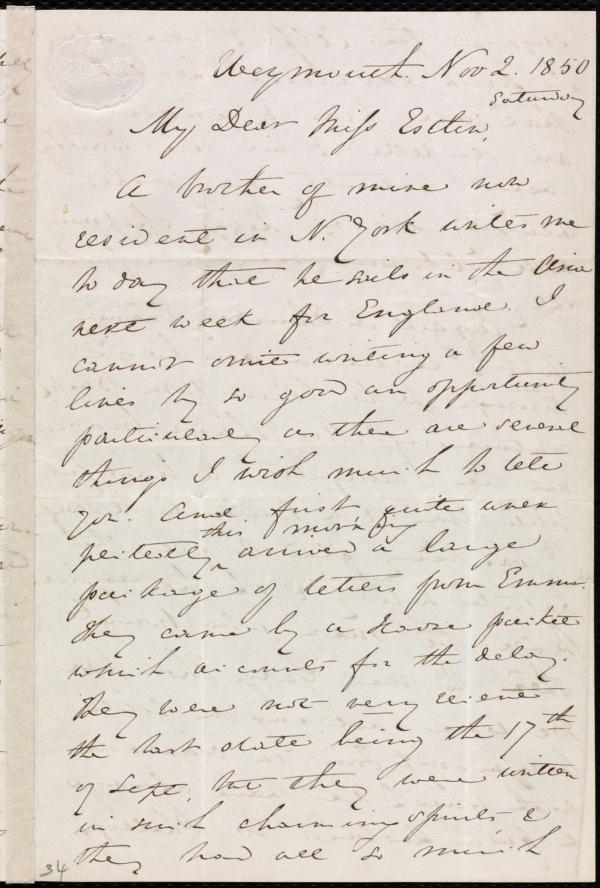 Weymouth. Nov 2. 1850
Saturday
My Dear Miss Estlin,
A brother of mine now
resident in N. York writes me
to day that he sails in the Asia
next week for England. I
cannot omit writing a few
lines by so good an opportunity
particularly as there are several
things I wish much to tell
you. And first, quite unex
this morning
pectedly, arrived a large
package of letters from Emma.
They came by a Havre packet
which accounts for the delay.
They were not very recent
the last date being the 17th
of Sept. but they were written
in such charming spirits &
they had all so much
34